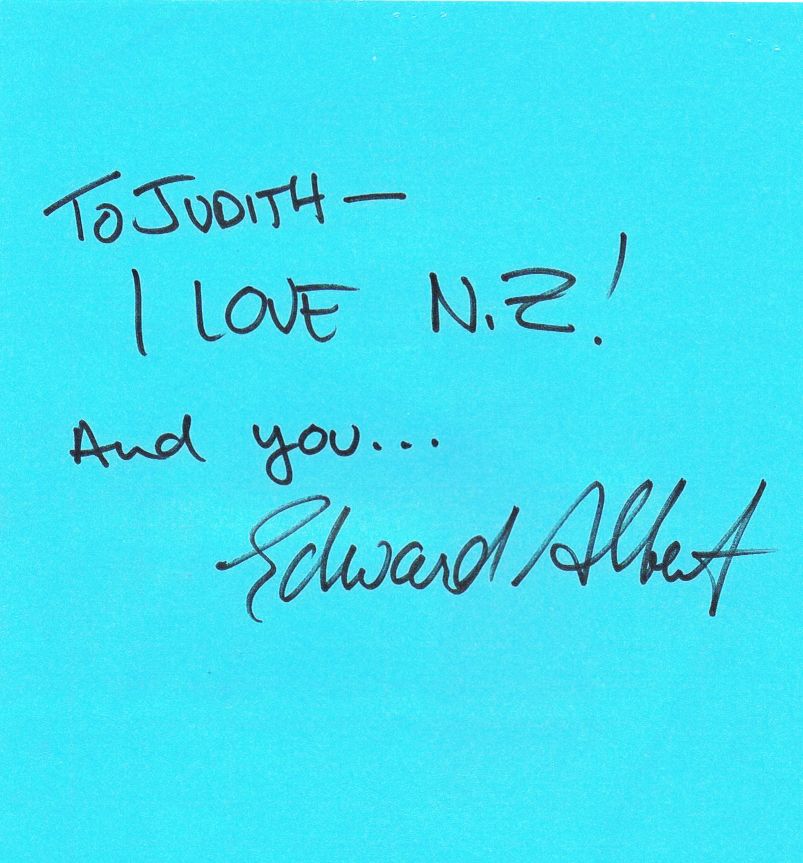 To JUDITH —
I LOVE N.Z!
And you...
Edward Albert